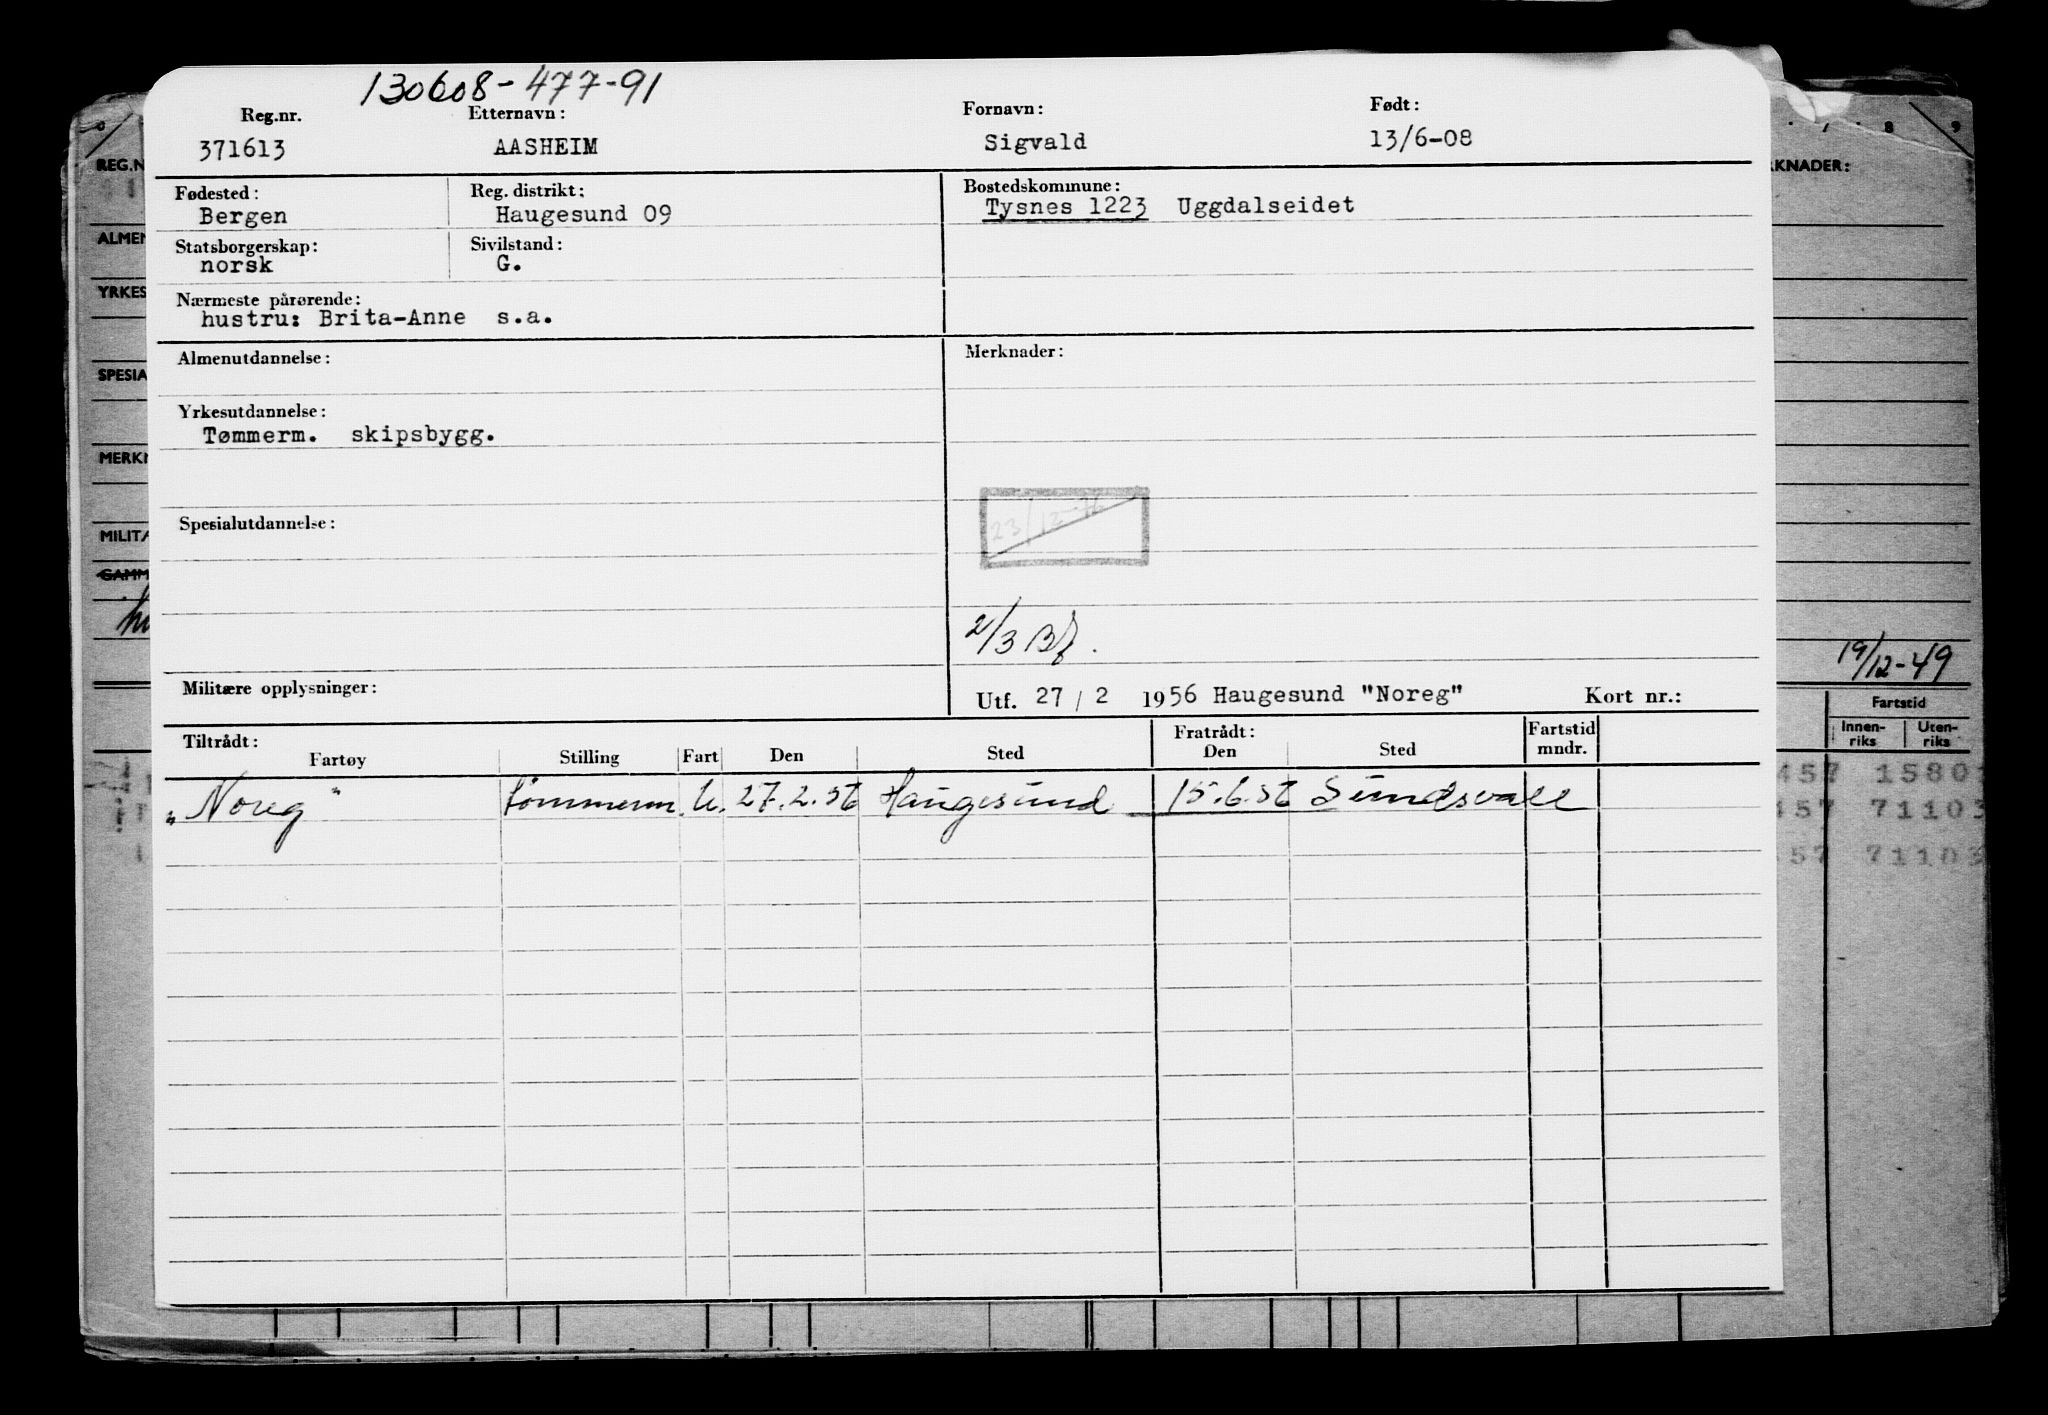 130608-477-91
Reg.nr. Etternavn: Fornavn: Født:
371613 AASHEIM Sigvald 13/6-08
Fødested: Reg. distrikt: Bostedskommune:
Bergen Haugesund 09 Tysnes 1223 Uggdalseidet
Statsborgerskap: Sivilstand:
norsk G.
Nærmeste pårørende:
hustru: Brita-Anne s.a.
Almenutdannelse: Merknader:
Yrkesutdannelse:
Tømmerm. skipsbygg.
Spesialutdannelse:
23/12-76
2/3 Bf.
Militære opplysninger:
Utf. 27 / 2 1956 Haugesund "Noreg" Kort nr.:
Tiltrådt: Fratrådt: Fartstid
Fartøy Stilling Fart Den Sted Den Sted mndr.
"Noreg" tømmerm. U. 27.2.56 Haugesund 15.6.56 Sundsvall
7 8 9
REG.N
RKNADER:
ALMEN
YRKES
SPESIA
MERKN
MILITÆ
GAMM
19/12-49
Fartstid
Innen-riks Uten-riks
457 15801
457 71103
457 71103